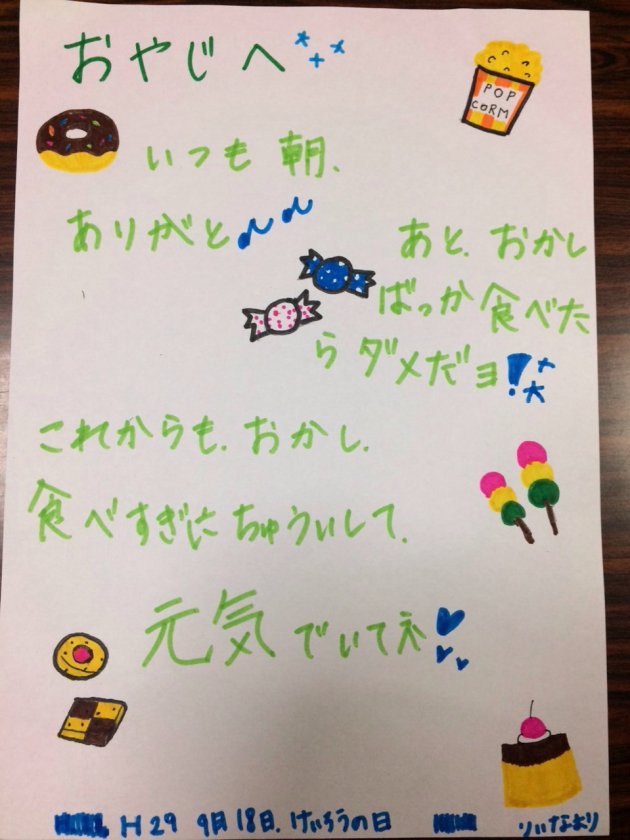 おやじへ
POP
CORM
いつも朝、
ありがと
あと、おかし
ばっか食べた
らダメだヨ!
これからも、おかし、
食べすぎにちゅういして、
元気でいてネ
H29 9月18日、けいろうの日
りいなより